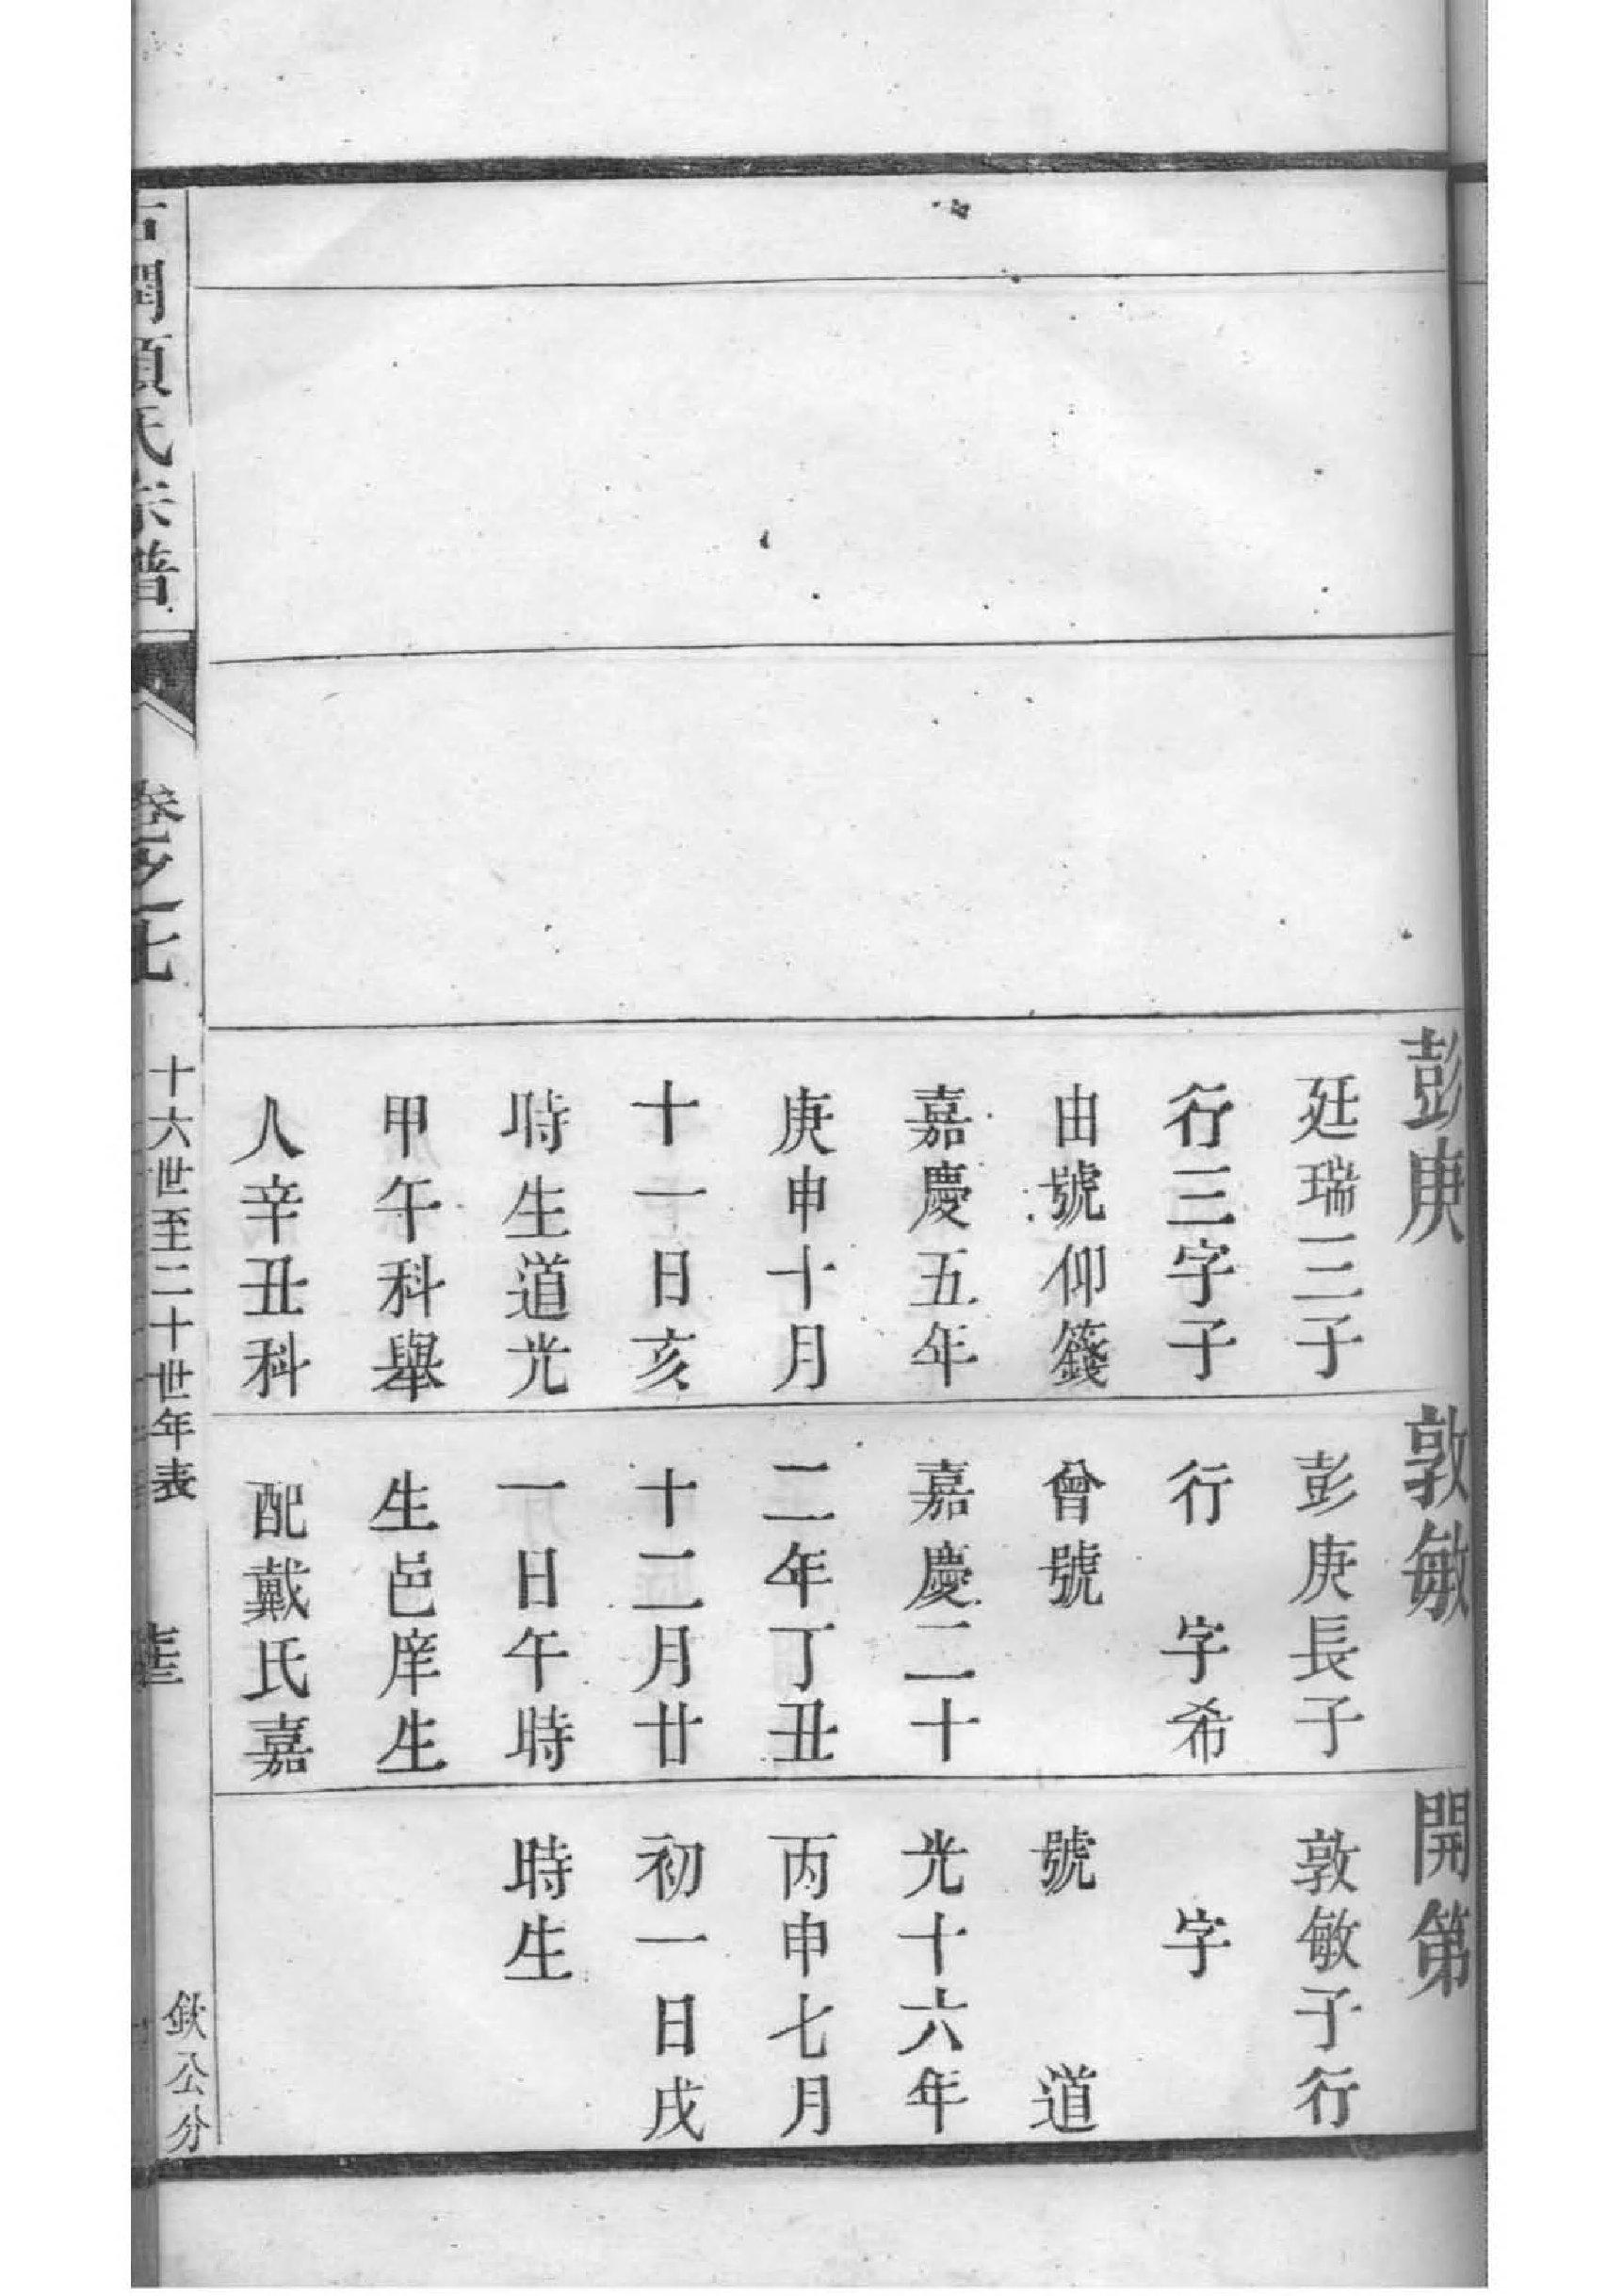 彭庚
廷瑞三子
行三字子
由號仰籛
嘉慶五年
庚申十月
十一日亥
時生道光
甲午科舉
人辛丑科
敦敏
彭庚長子
行　字希
曾號
嘉慶二十
二年丁丑
十二月廿
一日午時
生邑庠生
配戴氏嘉
開第
敦敏子行
字
號　道
光十六年
丙申七月
初一日戌
時生
氏宗譜
卷之七
十六世至二十世年表
欽公分